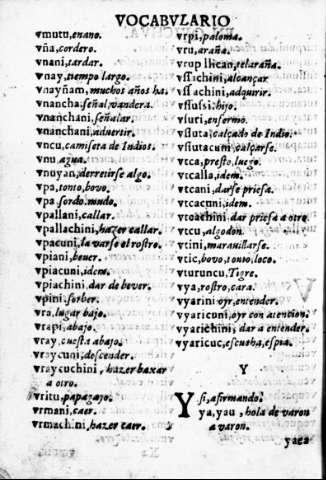 VOCABVLARIO
vmutu, enano.
vña, cordero.
vnani, tardar.
vnay, tiempo largo.
vnayñam, muchos años ha.
vnancha. señal, vandera.
vnanchani, señalar.
vnanchani, aduertir.
vncu, camiseta de Indios.
vnu, agua.
vnuyan, derretirse algo.
vpa, tonto, bovo.
vpa, sordo, mudo.
vpallani, callar.
vpallachini, hazer callar.
vpacuni, lavarse el rostro.
vpiani, beuer.
vpiacuni, idem.
vpiachini, dar de bever.
vpini, sorber.
vra, lugar bajo.
vrapi, abajo.
vray, cuesta abajo.
vraycuni, descender.
vraycuchini, hazer baxar
a otro.
vritu, papagayo.
vrmani, caer.
vrmachini, hazer caer.
vrpi, paloma.
vru, araña.
vrup llican, telaraña.
vssichini, alcançar.
vssachini, adquirir.
vssusi, hijo.
vsuri, enfermo.
vsiuta, calçado de Indio.
vsiutacuni, calçarse.
vtca, presto, luego.
vtcalla, idem.
vtcani, darse priesa.
vtcacuni, idem.
vtcachini, dar priesa a otro.
vtcu, algodon.
vtini, maravillarse.
vtic, bovo, tonto, loco.
vturuncu, Tigre.
vya, rostro, cara.
vyarini, oyr, entender.
vyaricuni, oyr con atencion.
vyarichini, dar a entender.
vyaricuc, escucha, espia.
Y
Y si, afirmando.
ya, yau, hola de varon
a varon.
yaca